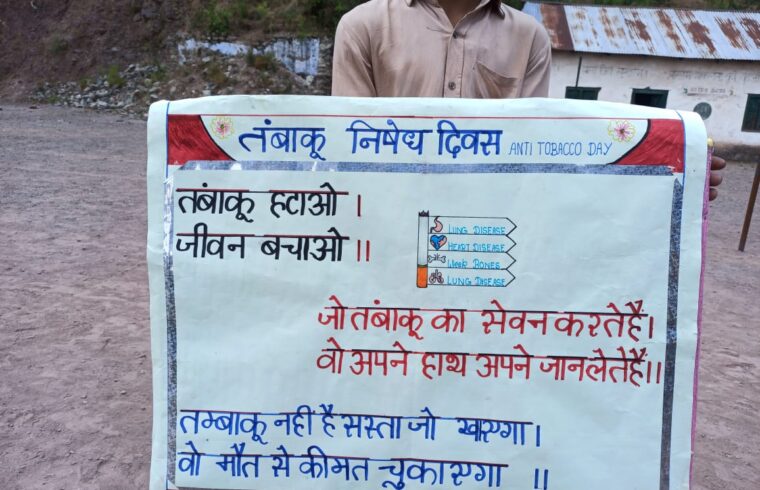 तंबाकू निषेध दिवस ANTI TOBACCO DAY
तंबाकू हटाओ ।
जीवन बचाओ ।।
LUNG DISEASE
HEART DISEASE
Week BONES
LUNG DISEASE
जो तंबाकू का सेवन करते है।
वो अपने हाथ अपने जान लेते है।।
तम्बाकू नही है सस्ता जो खाएगा।
वो मौत से कीमत चुकाएगा ।।